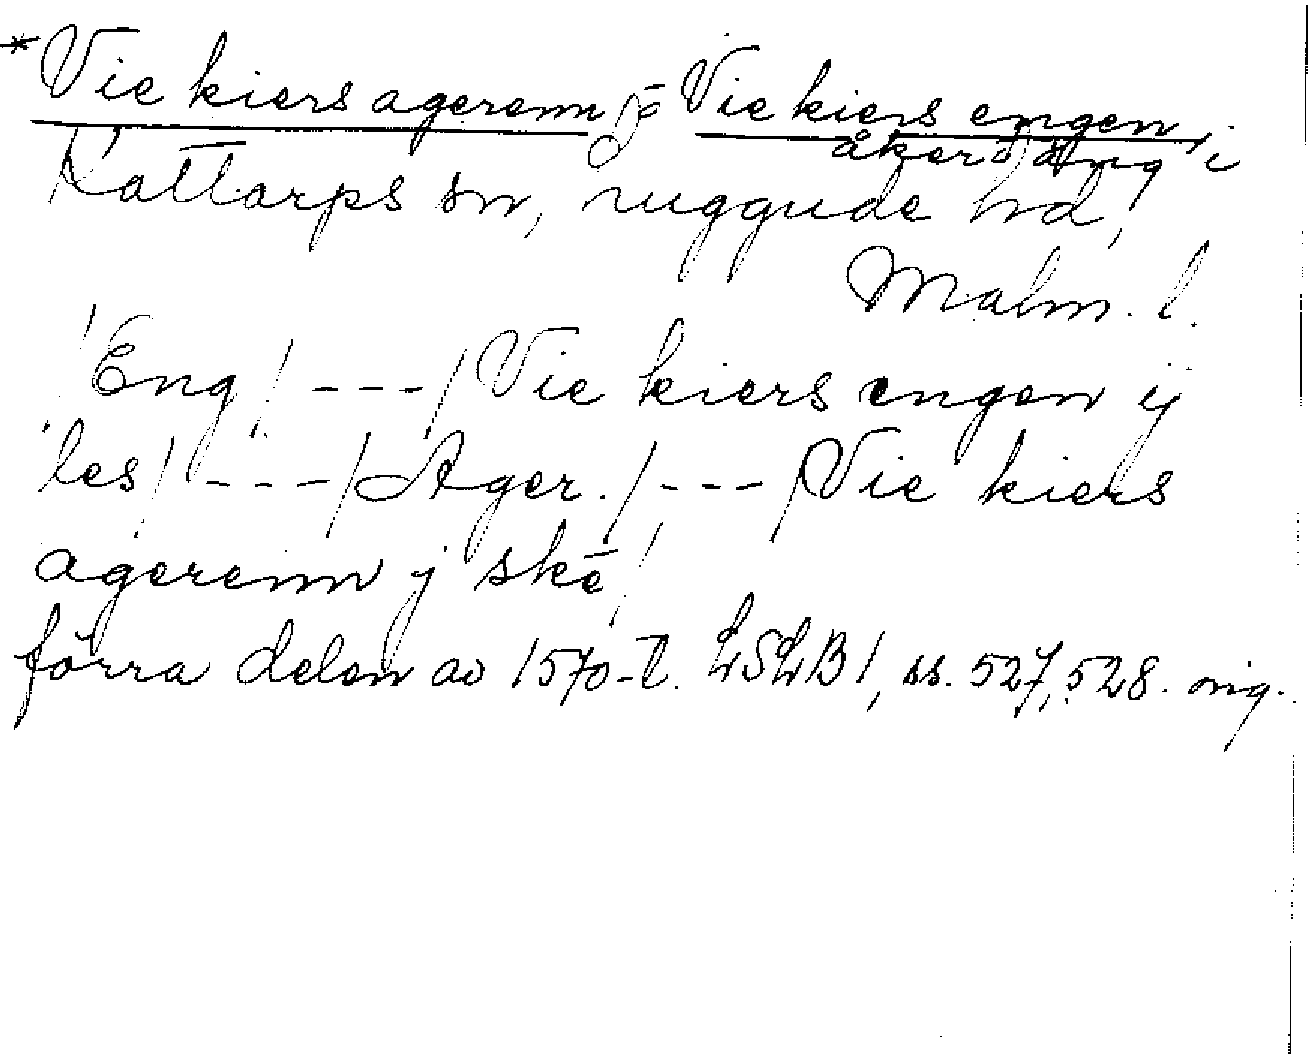 *Vie kiers agerenn o Vie kiers engen,
åker o äng i
Kattarps sn, Luggude hd,
Malm. l.
/Eng/ - - - / Vie kiers engen ij
les / - - - / Ager. / - - - / Vie kiers
agerenn j skē /
förra delen av 1570-t. LSLB 1, ss. 527, 528. orig.